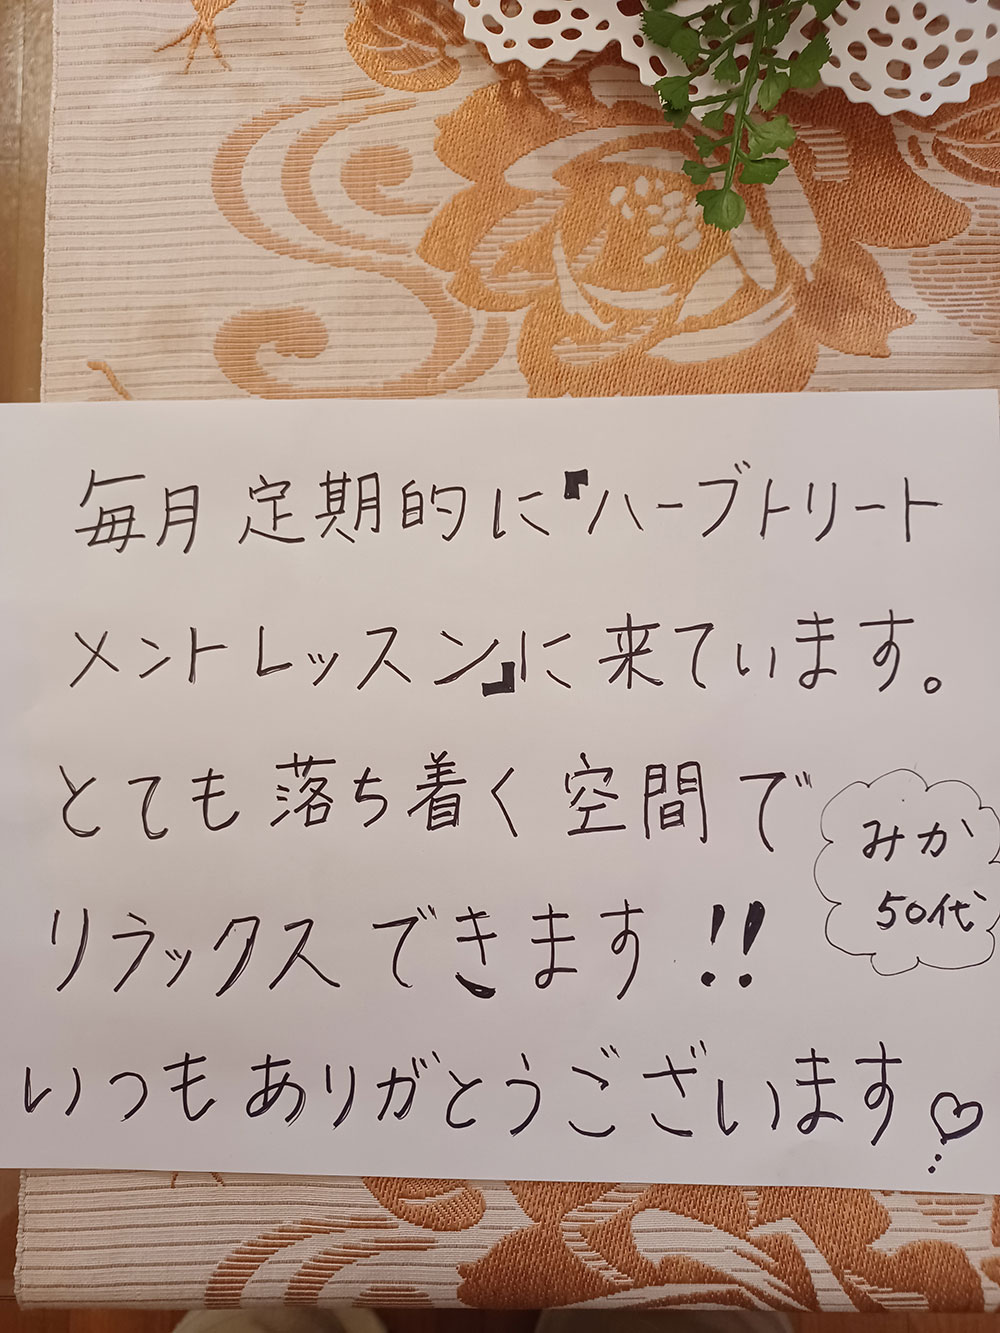 毎月定期的に『ハーブトリート
メントレッスン』に来ています。
とても落ち着く空間で
リラックスできます!!
いつもありがとうございます♡
みか
50代